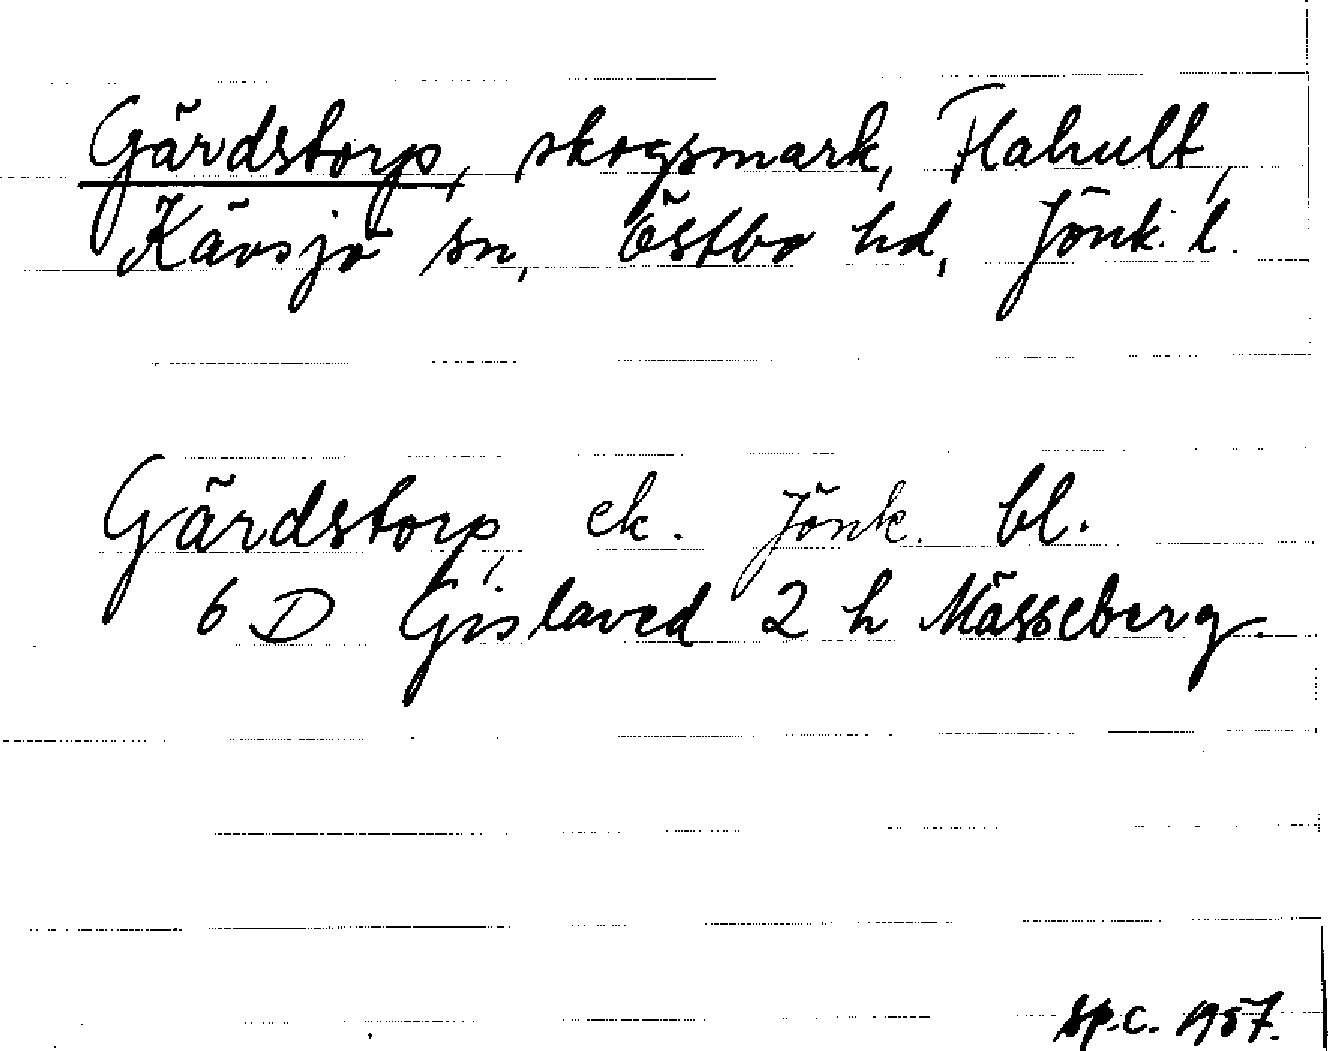 Gärdstorp, skogsmark, Flahult,
Kävsjö sn, Östbo hd, Jönk. l.
Gärdstorp, ek. Jönk. bl.
6 D Gislaved 2 h Mässeberg.
Sp.c. 1957.